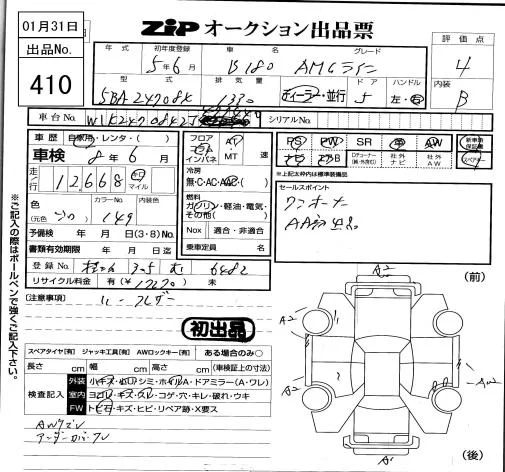 01月31日
ZiP オークション出品票
出品No.
410
年式
初年度登録
車名
グレード
評価点
5年6月
B180
AMGライン
4
型式
排気量
ドア
ハンドル
内装
5BA247084
1330
ディーラー・並行
5
左・右
B
車台No.
シリアルNo.
車歴
自家用・レンタ・( )
車検
8年6月
走行
12,668
km
マイル
色
カラーNo.
内装色
(元色)
149
予備検 年 月 日(3・8)No.
書類有効期限 年 月 日迄
登録No.
リサイクル料金 有(¥ ) 未
フロア
AT
コラム
インパネ
MT
速
冷房
無・C・AC・AAC・( )
燃料
ガソリン・軽油・電気・
その他( )
Nox 適合・非適合
乗車定員 名
6482
PS PW SR 革 AW
新車時保証書
ナビ エアB
社外ナビ
社外AW
※上記太枠内は標準装備品
セールスポイント
ワンオーナー
AA初出品
【注意事項】
初出品
スペアタイヤ[有] ジャッキ工具[有] AWロックキー[有] ある場合のみ○
長さ cm 幅 cm 高さ cm (車検証上の寸法)
検査記入
外装 小キズ・凹・シミ・ホイルA・ドアミラー(A・ワレ)
室内 ヨゴレ・キズ・スレ・コゲ・穴・キレ・破れ・ウキ
FW トビ石・キズ・ヒビ・リペア跡・X要ス
AWキズ
アンダーカバーズレ
※ご記入の際はボールペンで強くご記入下さい。
(前)
A2
A2
A2
A1
(後)